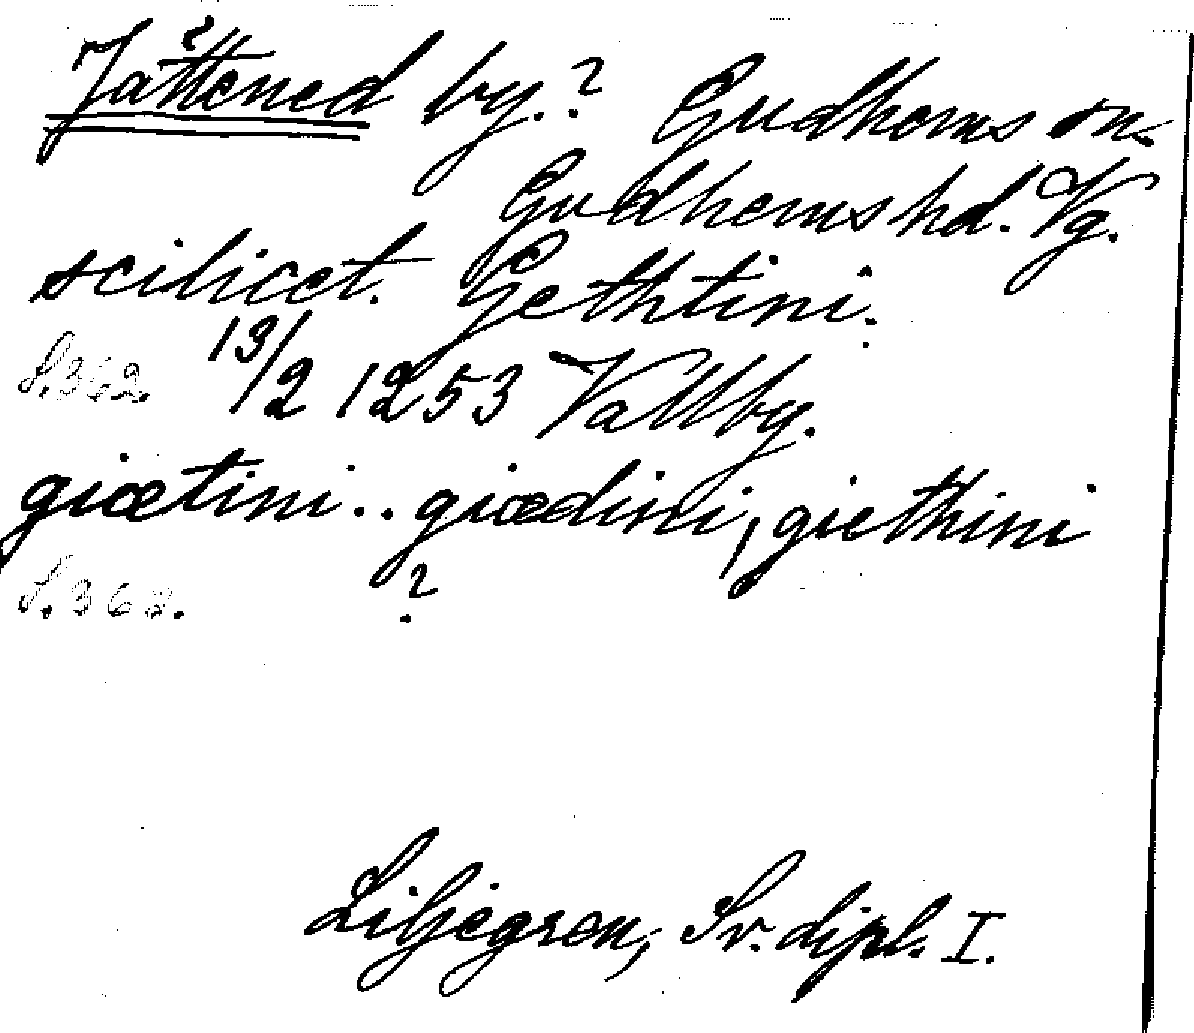 Jättened by.? Gudhems sn.
Gudhems hd. Vg.
scilicet. Gethtini.
S.362. 13/2 1253 Vallby.
giætini.. giædini, giethini
S.368. ?
Liljegren, Sv. dipl. I.